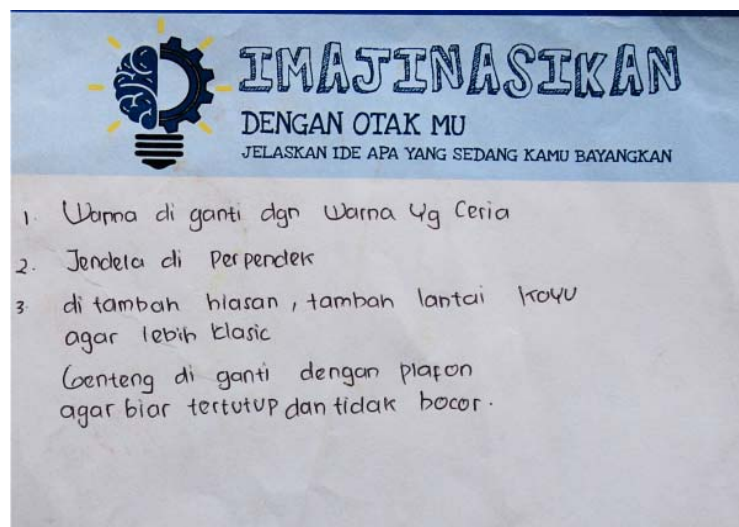 IMAJINASIKAN
DENGAN OTAK MU
JELASKAN IDE APA YANG SEDANG KAMU BAYANGKAN
1. Warna di ganti dgn warna yg ceria
2. Jendela di perpendek
3. di tambah hiasan, tambah lantai kayu
agar lebih klasic
Genteng di ganti dengan plafon
agar biar tertutup dan tidak bocor.